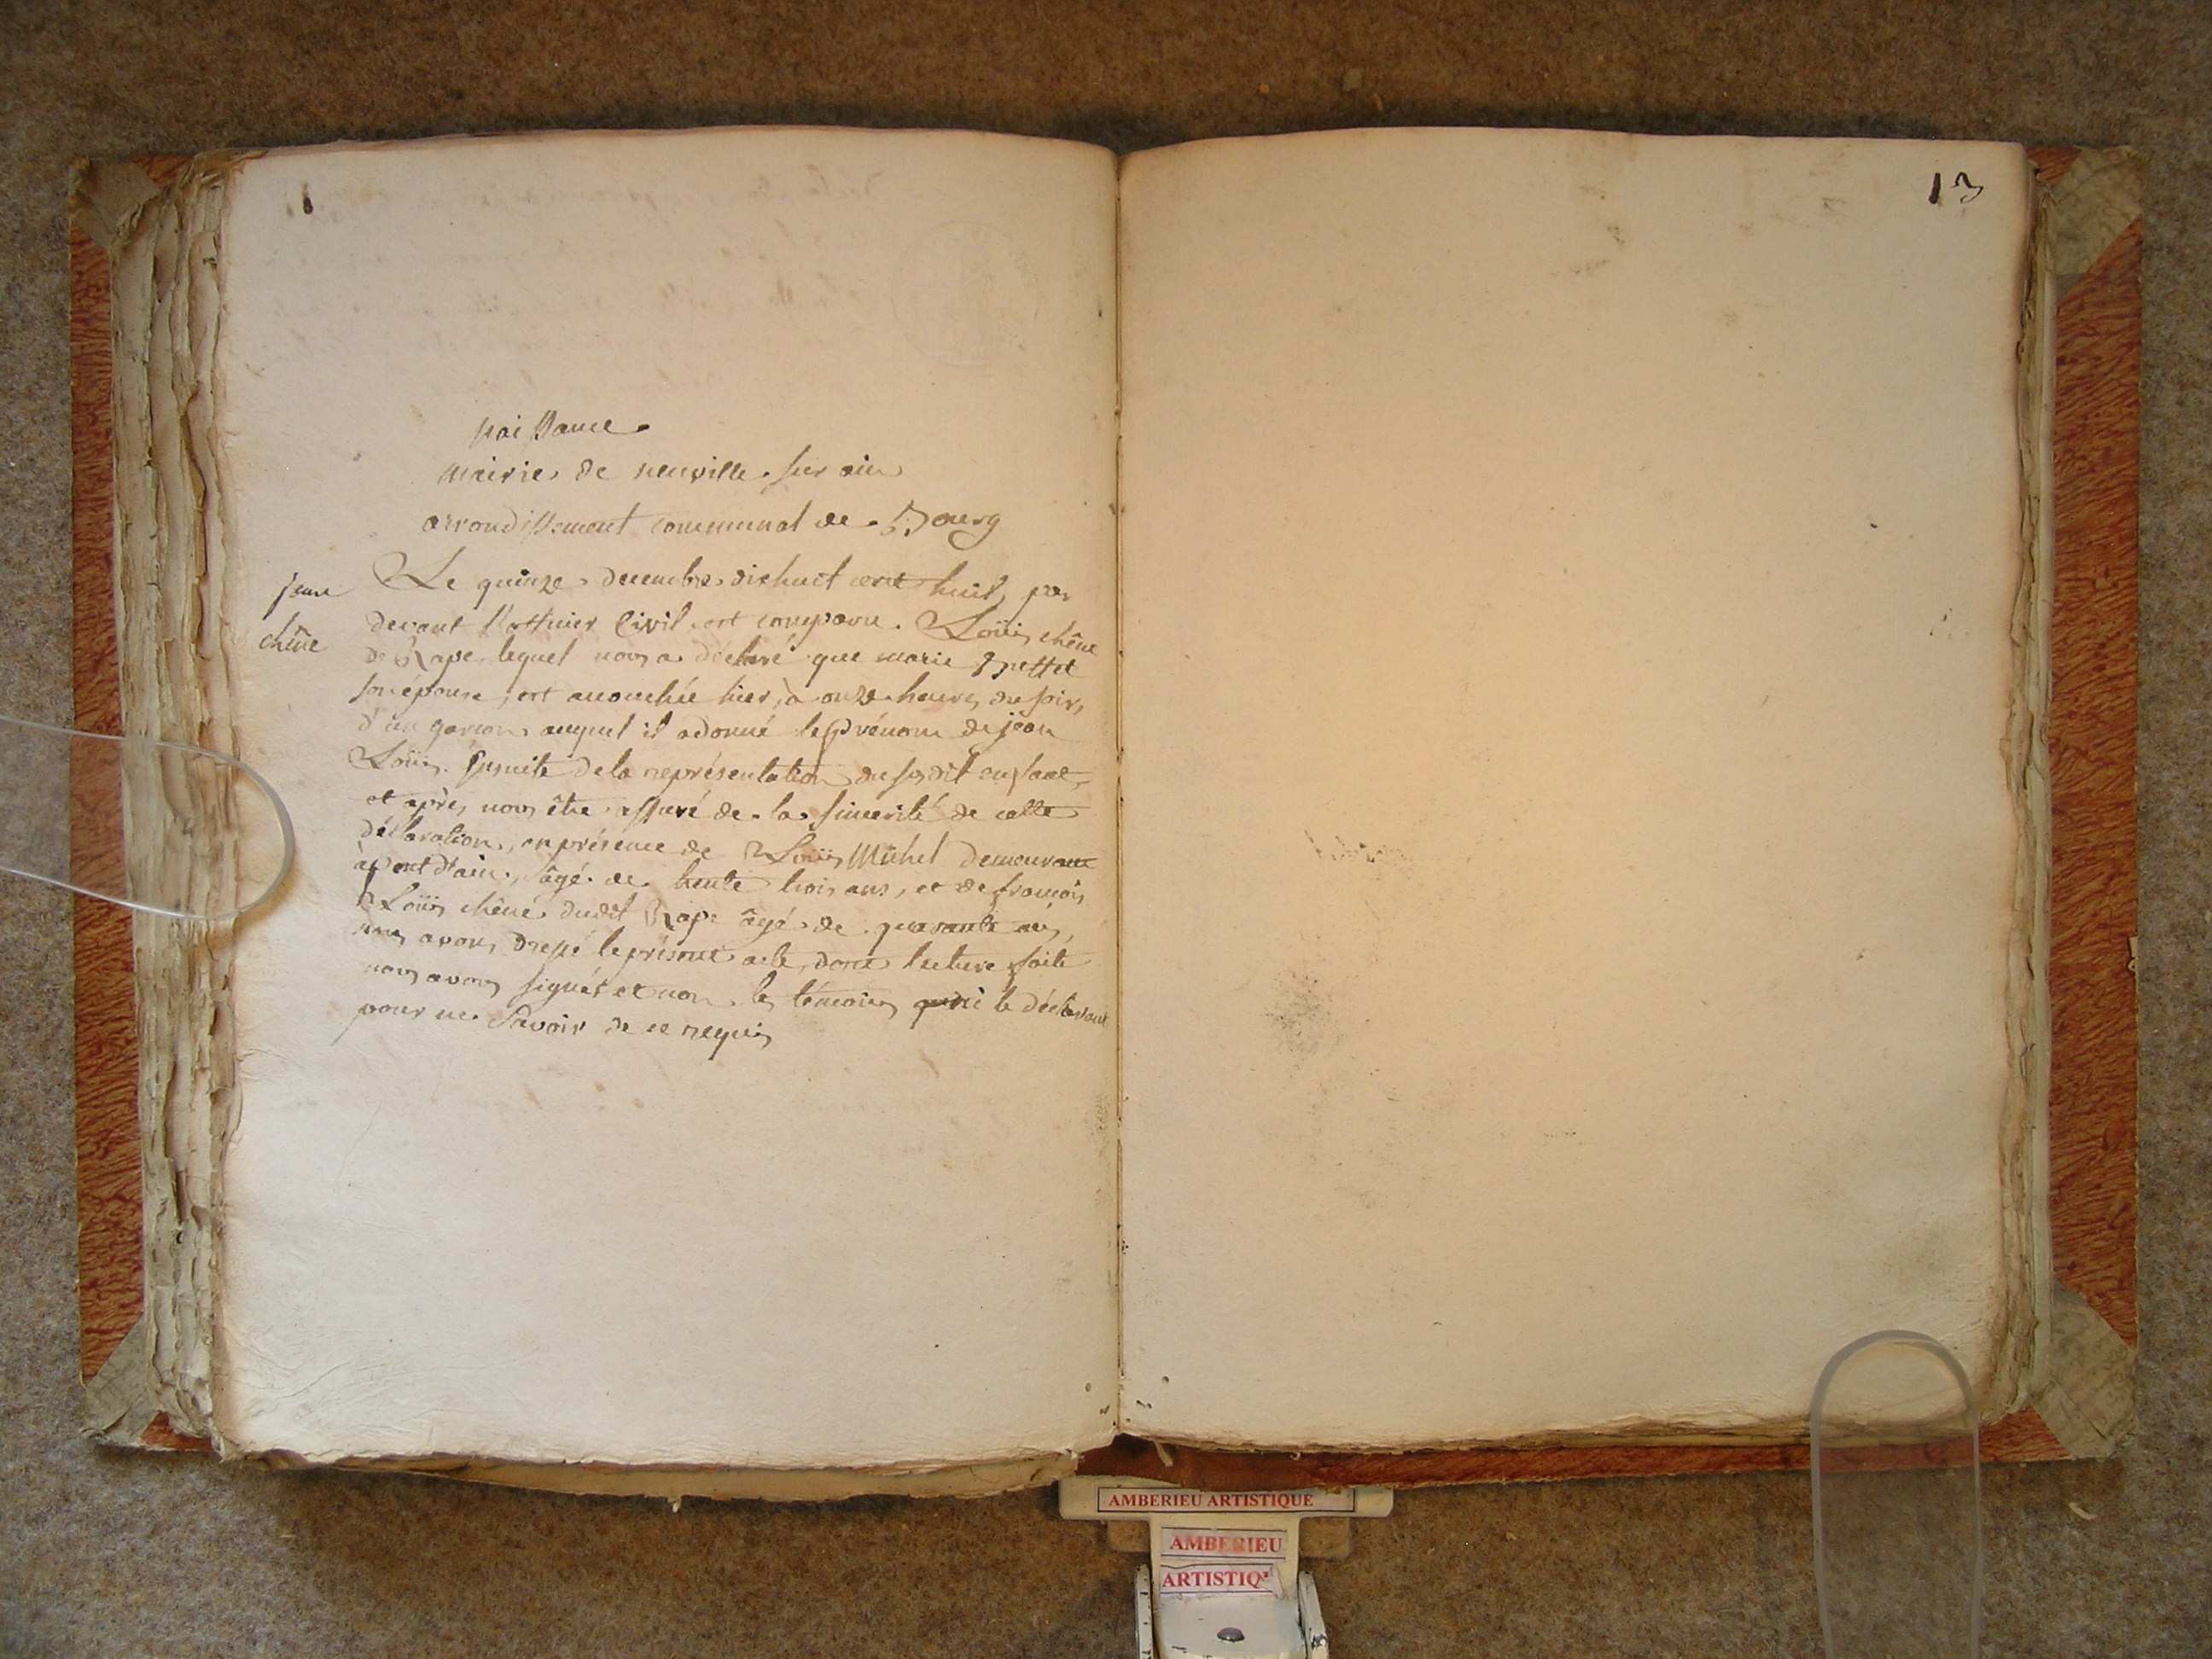 13
naissance
mairie de neuville sur ain
arrondissement communal de Bourg
jean
chêne
Le quinze decembre dixhuit cent huit, par
devant l'officier Civil est comparu Loüis chêne
de Rape lequel nous a déclaré que marie
son épouse, est accouchée hier, à onze heures du soir,
d'un garcon auquel il a donné le prénom de jean
Loüis. Ensuite de la représentation du susdit enfant,
et après nous être assuré de la sincerité de cette
déclaration, en présence de Loüis Michel demeurant
à pont d'ain, âgé de trente trois ans, et de francois
Loüis chêne dudit Rape âgé de quarante ans,
nous avons dressé le présent acte, dont lecture faite
nous avons signés et non les témoins le déclarant
pour ne Savoir de ce requis
AMBERIEU ARTISTIQUE
AMBERIEU
ARTISTIQ